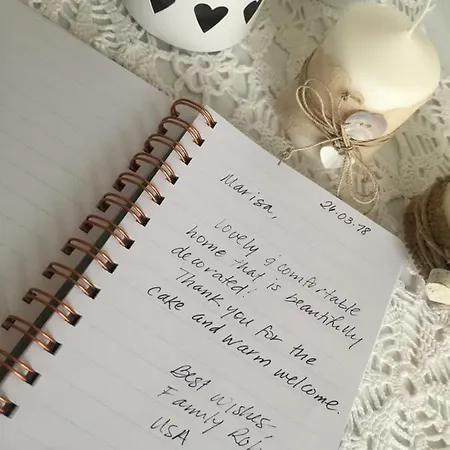 Marisa,
26.03.18
Lovely & comfortable
home that is beautifully
decorated!
Thank you for the
cake and warm welcome.
Best wishes
Family
USA